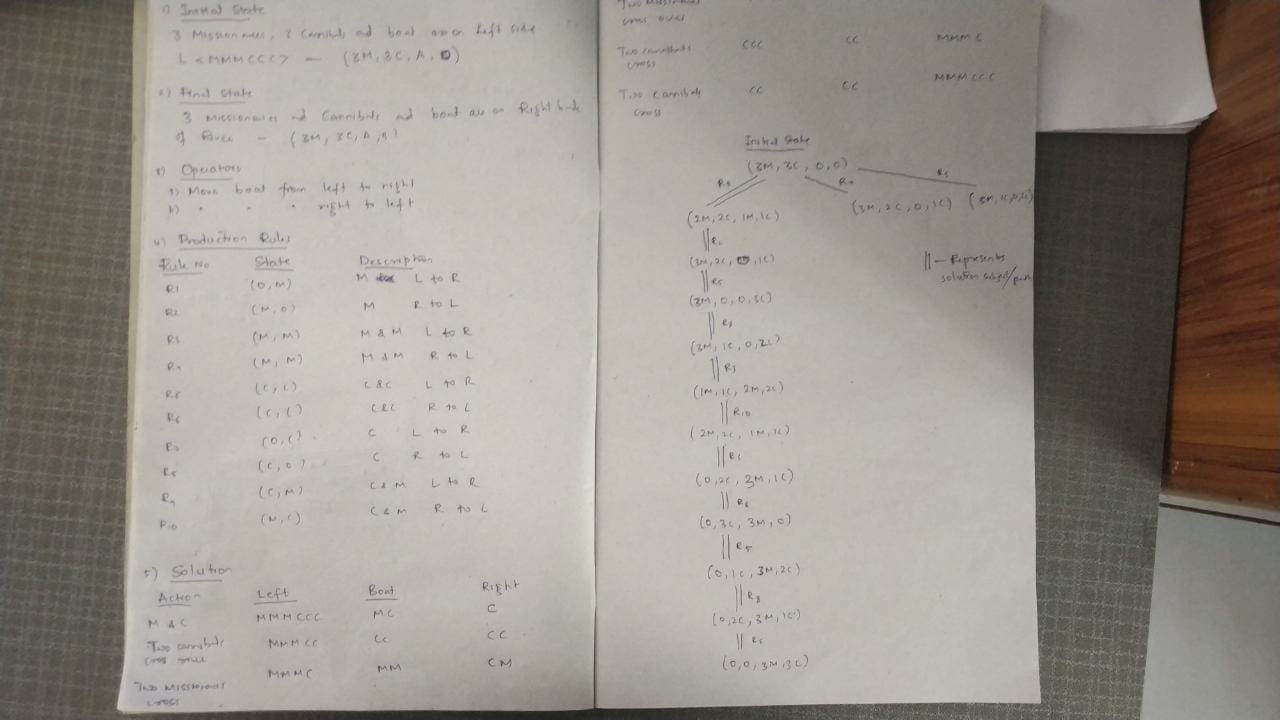 1) Initial State
3 Missionaries, 3 Cannibals and boat are on Left side
L <MMMCCC> — (3M, 3C, A, 0)
2) Final State
3 Missionaries and Cannibals and boat are on Right bank
of River — (3M, 3C, A, B)
3) Operators
a) Move boat from left to right
b) " " " right to left
4) Production Rules
Rule No State Description
R1 (0, M) M L to R
R2 (M, 0) M R to L
R3 (M, M) M & M L to R
R4 (M, M) M & M R to L
R5 (C, C) C&C L to R
R6 (C, C) C&C R to L
(0, C) C L to R
(C, 0) C R to L
R9 (C, M) C & M L to R
R10 (M, C) C & M R to L
5) Solution
Action Left Boat Right
M & C MMMCCC MC C
Two cannibals MMMCC CC CC
cross
MMMC MM CM
Two Missionaries
cross
Two Missionaries
cross over
Two cannibals CCC CC MMMC
cross
Two Cannibals CC CC MMMCCC
cross
Initial State
(3M, 3C, 0, 0)
(2M, 2C, 1M, 1C) (3M, 2C, 0, 1C) (3M, 1C, 0, 2C)
(3M, 2C, 0, 1C)
R5
(3M, 0, 0, 3C)
R8
(3M, 1C, 0, 2C)
R3
(1M, 1C, 2M, 2C)
R10
(2M, 2C, 1M, 1C)
(0, 2C, 3M, 1C)
R6
(0, 3C, 3M, 0)
R5
(0, 1C, 3M, 2C)
R8
(0, 2C, 3M, 1C)
R5
(0, 0, 3M, 3C)
|| — Represents
solution